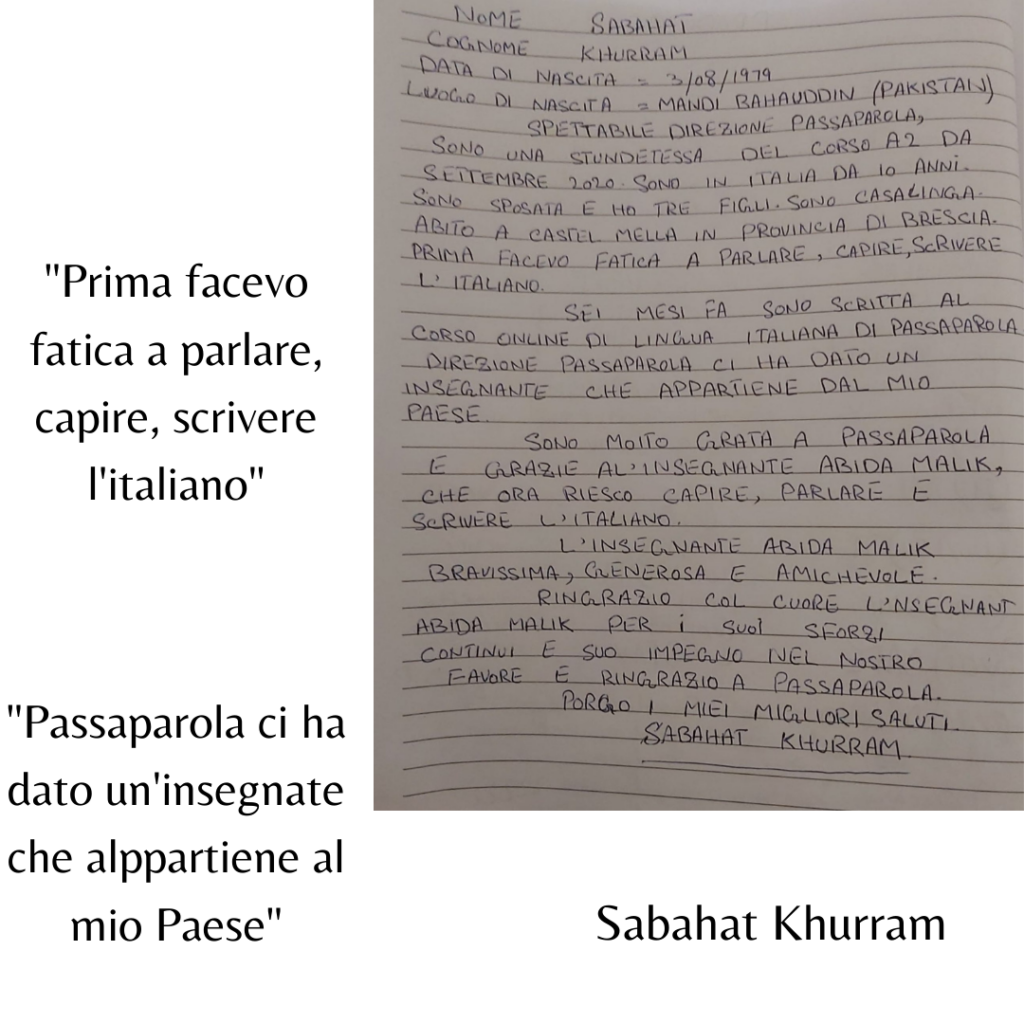 NOME SABAHAT
COGNOME KHURRAM
DATA DI NASCITA = 3/08/1979
LUOGO DI NASCITA = MANDI BAHAUDDIN (PAKISTAN)
SPETTABILE DIREZIONE PASSAPAROLA,
SONO UNA STUNDETESSA DEL CORSO A2 DA
SETTEMBRE 2020. SONO IN ITALIA DA 10 ANNI.
SONO SPOSATA E HO TRE FIGLI. SONO CASALINGA.
ABITO A CASTEL MELLA IN PROVINCIA DI BRESCIA.
PRIMA FACEVO FATICA A PARLARE, CAPIRE, SCRIVERE
L'ITALIANO.
SEI MESI FA SONO SCRITTA AL
CORSO ONLINE DI LINGUA ITALIANA DI PASSAPAROLA
DIREZIONE PASSAPAROLA CI HA DATO UN
INSEGNANTE CHE APPARTIENE DAL MIO
PAESE.
SONO MOLTO GRATA A PASSAPAROLA
E GRAZIE AL'INSEGNANTE ABIDA MALIK,
CHE ORA RIESCO CAPIRE, PARLARE E
SCRIVERE L'ITALIANO.
L'INSEGNANTE ABIDA MALIK
BRAVISSIMA, GENEROSA E AMICHEVOLE.
RINGRAZIO COL CUORE L'NSEGNANT
ABIDA MALIK PER I SUOI SFORZI
CONTINUI E SUO IMPEGNO NEL NOSTRO
FAVORE E RINGRAZIO A PASSAPAROLA.
PORGO I MIEI MIGLIORI SALUTI.
SABAHAT KHURRAM.
"Prima facevo
fatica a parlare,
capire, scrivere
l'italiano"
"Passaparola ci ha
dato un'insegnate
che alppartiene al
mio Paese"
Sabahat Khurram